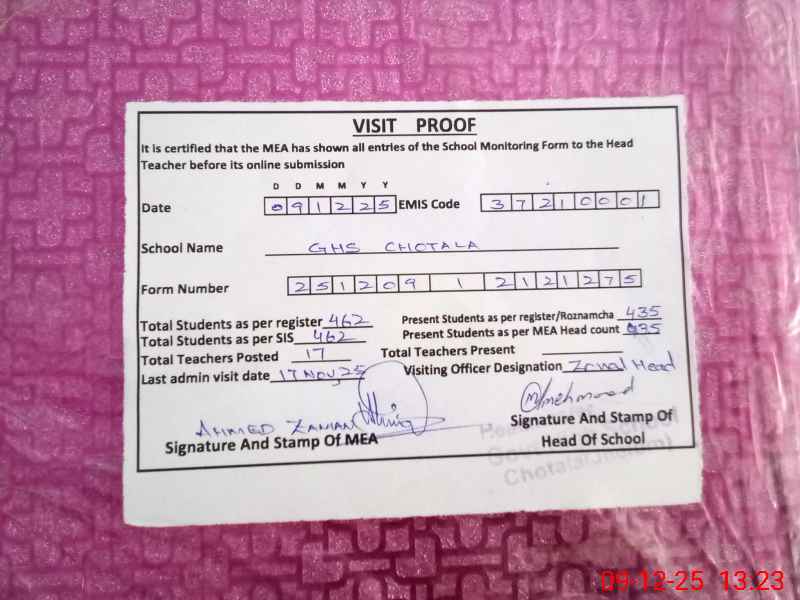 VISIT PROOF
It is certified that the MEA has shown all entries of the School Monitoring Form to the Head
Teacher before its online submission
D D M M Y Y
Date 0 9 1 2 2 5 EMIS Code 3 7 2 1 0 0 0 1
School Name GHS CHOTALA
Form Number 2 5 1 2 0 9 1 2 1 2 1 2 7 5
Total Students as per register 462 Present Students as per register/Roznamcha 435
Total Students as per SIS 462 Present Students as per MEA Head count 435
Total Teachers Posted 17 Total Teachers Present
Last admin visit date 17 Nov, 25 Visiting Officer Designation Zonal Head
AHMED ZAMAN
Signature And Stamp Of MEA Signature And Stamp Of
Head Of School
School
Chotala(Jhelum)
09-12-25 13:23